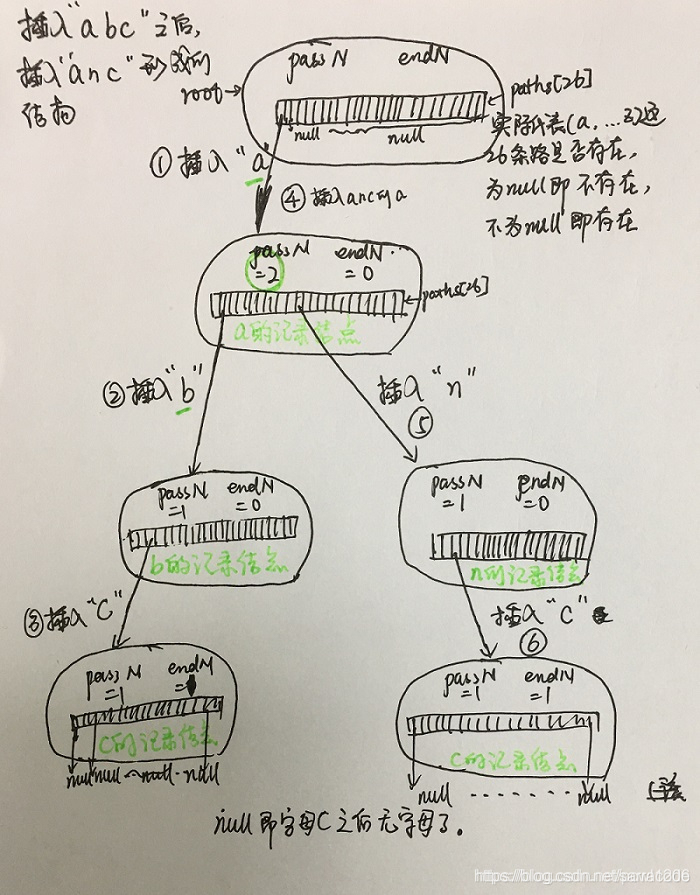 插入"abc"之后,
插入"anc"形成的
结构
root→
passN endN
paths[26]
null null
实际代表(a,...z)这
26条路是否存在,
为null即不存在,
不为null即存在
① 插入"a"
④ 插入anc的a
passN endN
=2 =0
paths[26]
a的记录结点
② 插入"b"
插入"n"
⑤
passN endN
=1 =0
b的记录结点
passN endN
=1 =0
n的记录结点
③插入"C"
插入"C"
⑥
passN endN
=1 =
C的记录结点
null null null null
passN endN
=1 =1
C的记录结点
null ........ null
null即字母C之后无字母了。